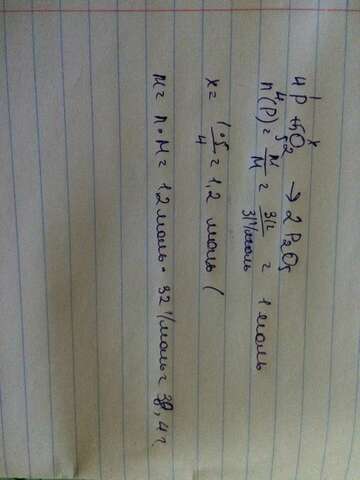 1 x
4P + 5O2 → 2P2O5
4 5
n(P) = m/M = 31г/31г/моль = 1 моль
x = 1·5/4 = 1,2 моль (
m = n·M = 1,2 моль · 32 г/моль = 38,4 г